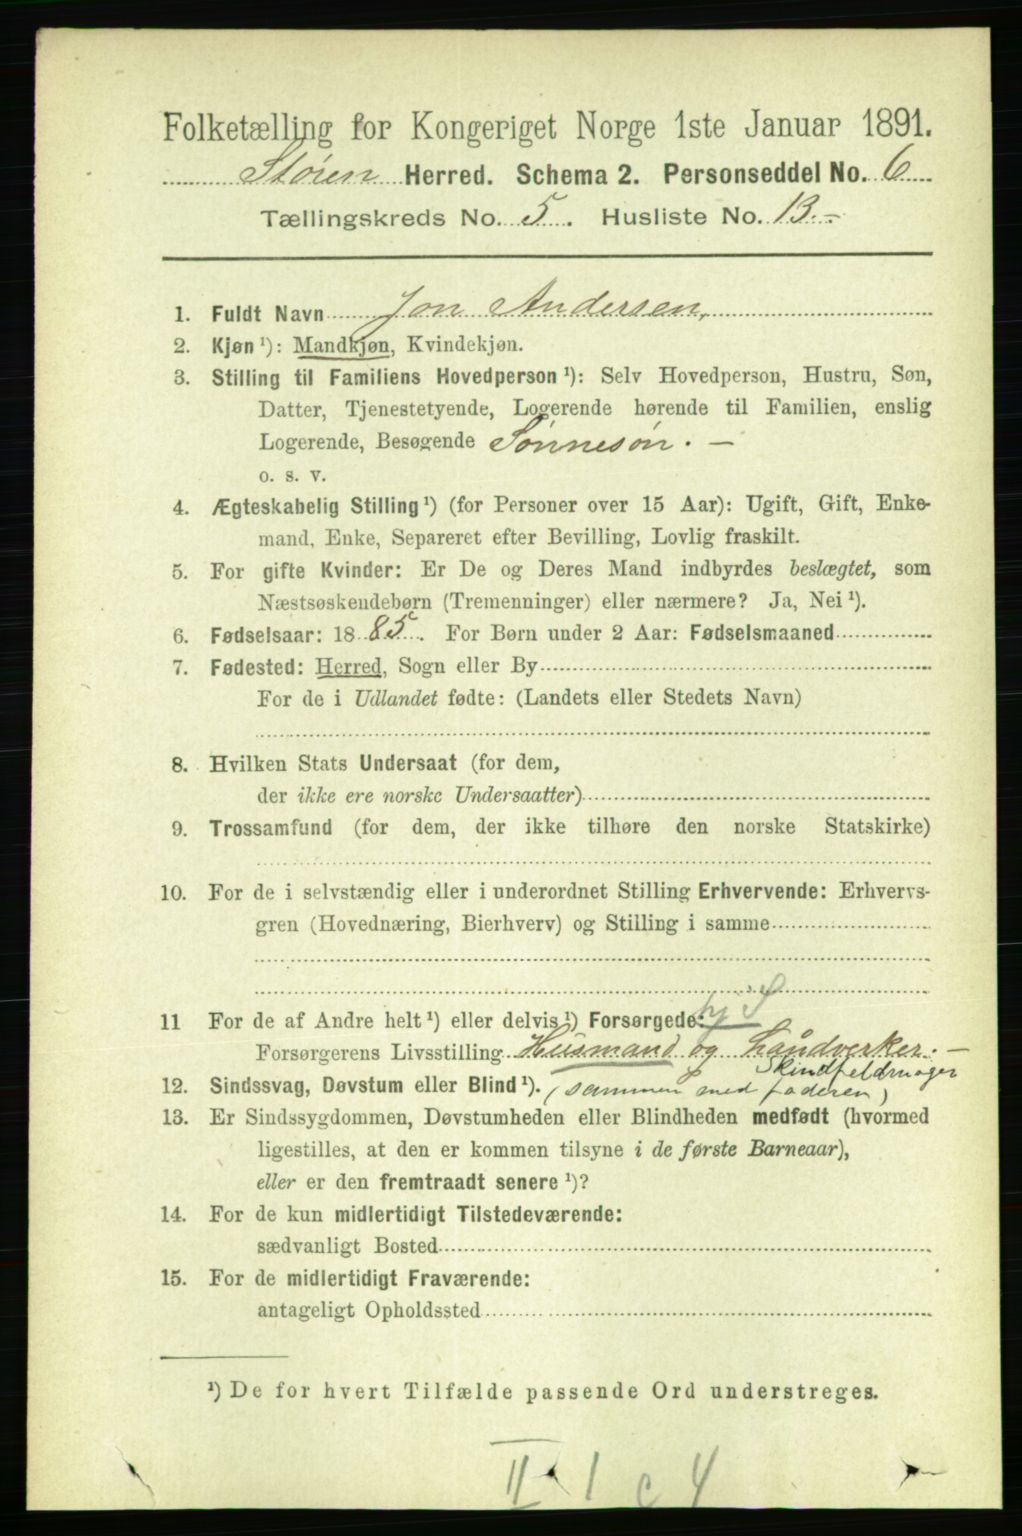 Folketælling for Kongeriget Norge 1ste Januar 1891.
Støren Herred. Schema 2. Personseddel No. 6
Tællingskreds No. 5. Husliste No. 13.-
1. Fuldt Navn Jon Andersen,
2. Kjøn ¹): Mandkjøn, Kvindekjøn.
3. Stilling til Familiens Hovedperson ¹): Selv Hovedperson, Hustru, Søn,
Datter, Tjenestetyende, Logerende hørende til Familien, enslig
Logerende, Besøgende Sønnesøn. —
o. s. v.
4. Ægteskabelig Stilling ¹) (for Personer over 15 Aar): Ugift, Gift, Enke-
mand, Enke, Separeret efter Bevilling, Lovlig fraskilt.
5. For gifte Kvinder: Er De og Deres Mand indbyrdes beslægtet, som
Næstsøskendebørn (Tremenninger) eller nærmere? Ja, Nei ¹).
6. Fødselsaar: 18 85. For Børn under 2 Aar: Fødselsmaaned
7. Fødested: Herred, Sogn eller By
For de i Udlandet fødte: (Landets eller Stedets Navn)
8. Hvilken Stats Undersaat (for dem,
der ikke ere norske Undersaatter)
9. Trossamfund (for dem, der ikke tilhøre den norske Statskirke)
10. For de i selvstændig eller i underordnet Stilling Erhvervende: Erhvervs-
gren (Hovednæring, Bierhverv) og Stilling i samme
11 For de af Andre helt ¹) eller delvis ¹) Forsørgede:
Forsørgerens Livsstilling Husmand og håndverker. —
Skindfeldmager
12. Sindssvag, Døvstum eller Blind ¹). (sammen med faderen)
13. Er Sindssygdommen, Døvstumheden eller Blindheden medfødt (hvormed
ligestilles, at den er kommen tilsyne i de første Barneaar),
eller er den fremtraadt senere ¹)?
14. For de kun midlertidigt Tilstedeværende:
sædvanligt Bosted
15. For de midlertidigt Fraværende:
antageligt Opholdssted
¹) De for hvert Tilfælde passende Ord understreges.
II 1 c 4